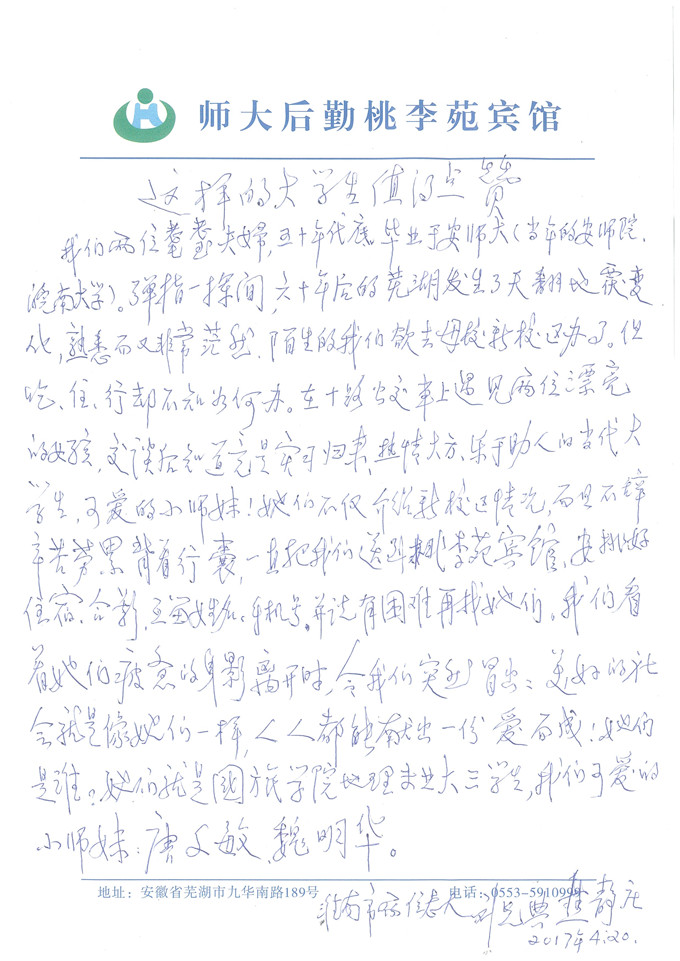 师大后勤桃李苑宾馆
这样的大学生值得点赞
我们两位耄耋夫婦,五十年代底毕业于安师大(当年的安师院、
皖南大学)。弹指一挥间,六十年后的芜湖发生了天翻地覆变
化,熟悉而又非常茫然、陌生的我们欲去母校新校区办事。但
吃、住、行却不知如何办。在十路公交车上遇见两位漂亮
的女孩,交谈后知道竟是实习归来,热情大方、乐于助人的当代大
学生,可爱的小师妹!她们不仅介绍新校区情况,而且不辞
辛苦劳累背着行囊,一直把我们送到桃李苑宾馆,安排好
住宿、合影,互留姓名、手机号。并说有困难再找她们。我们看
着她们疲惫的身影离开时,令我们突然冒出:美好的社
会就是像她们一样,人人都能献出一份爱而成!她们
是谁?她们就是國旅学院地理专业大三学生,我们可爱的
小师妹:唐文敏、魏明华。
地址:安徽省芜湖市九华南路189号 电话:0553-5910999
淮南市 静
2017年4.20.